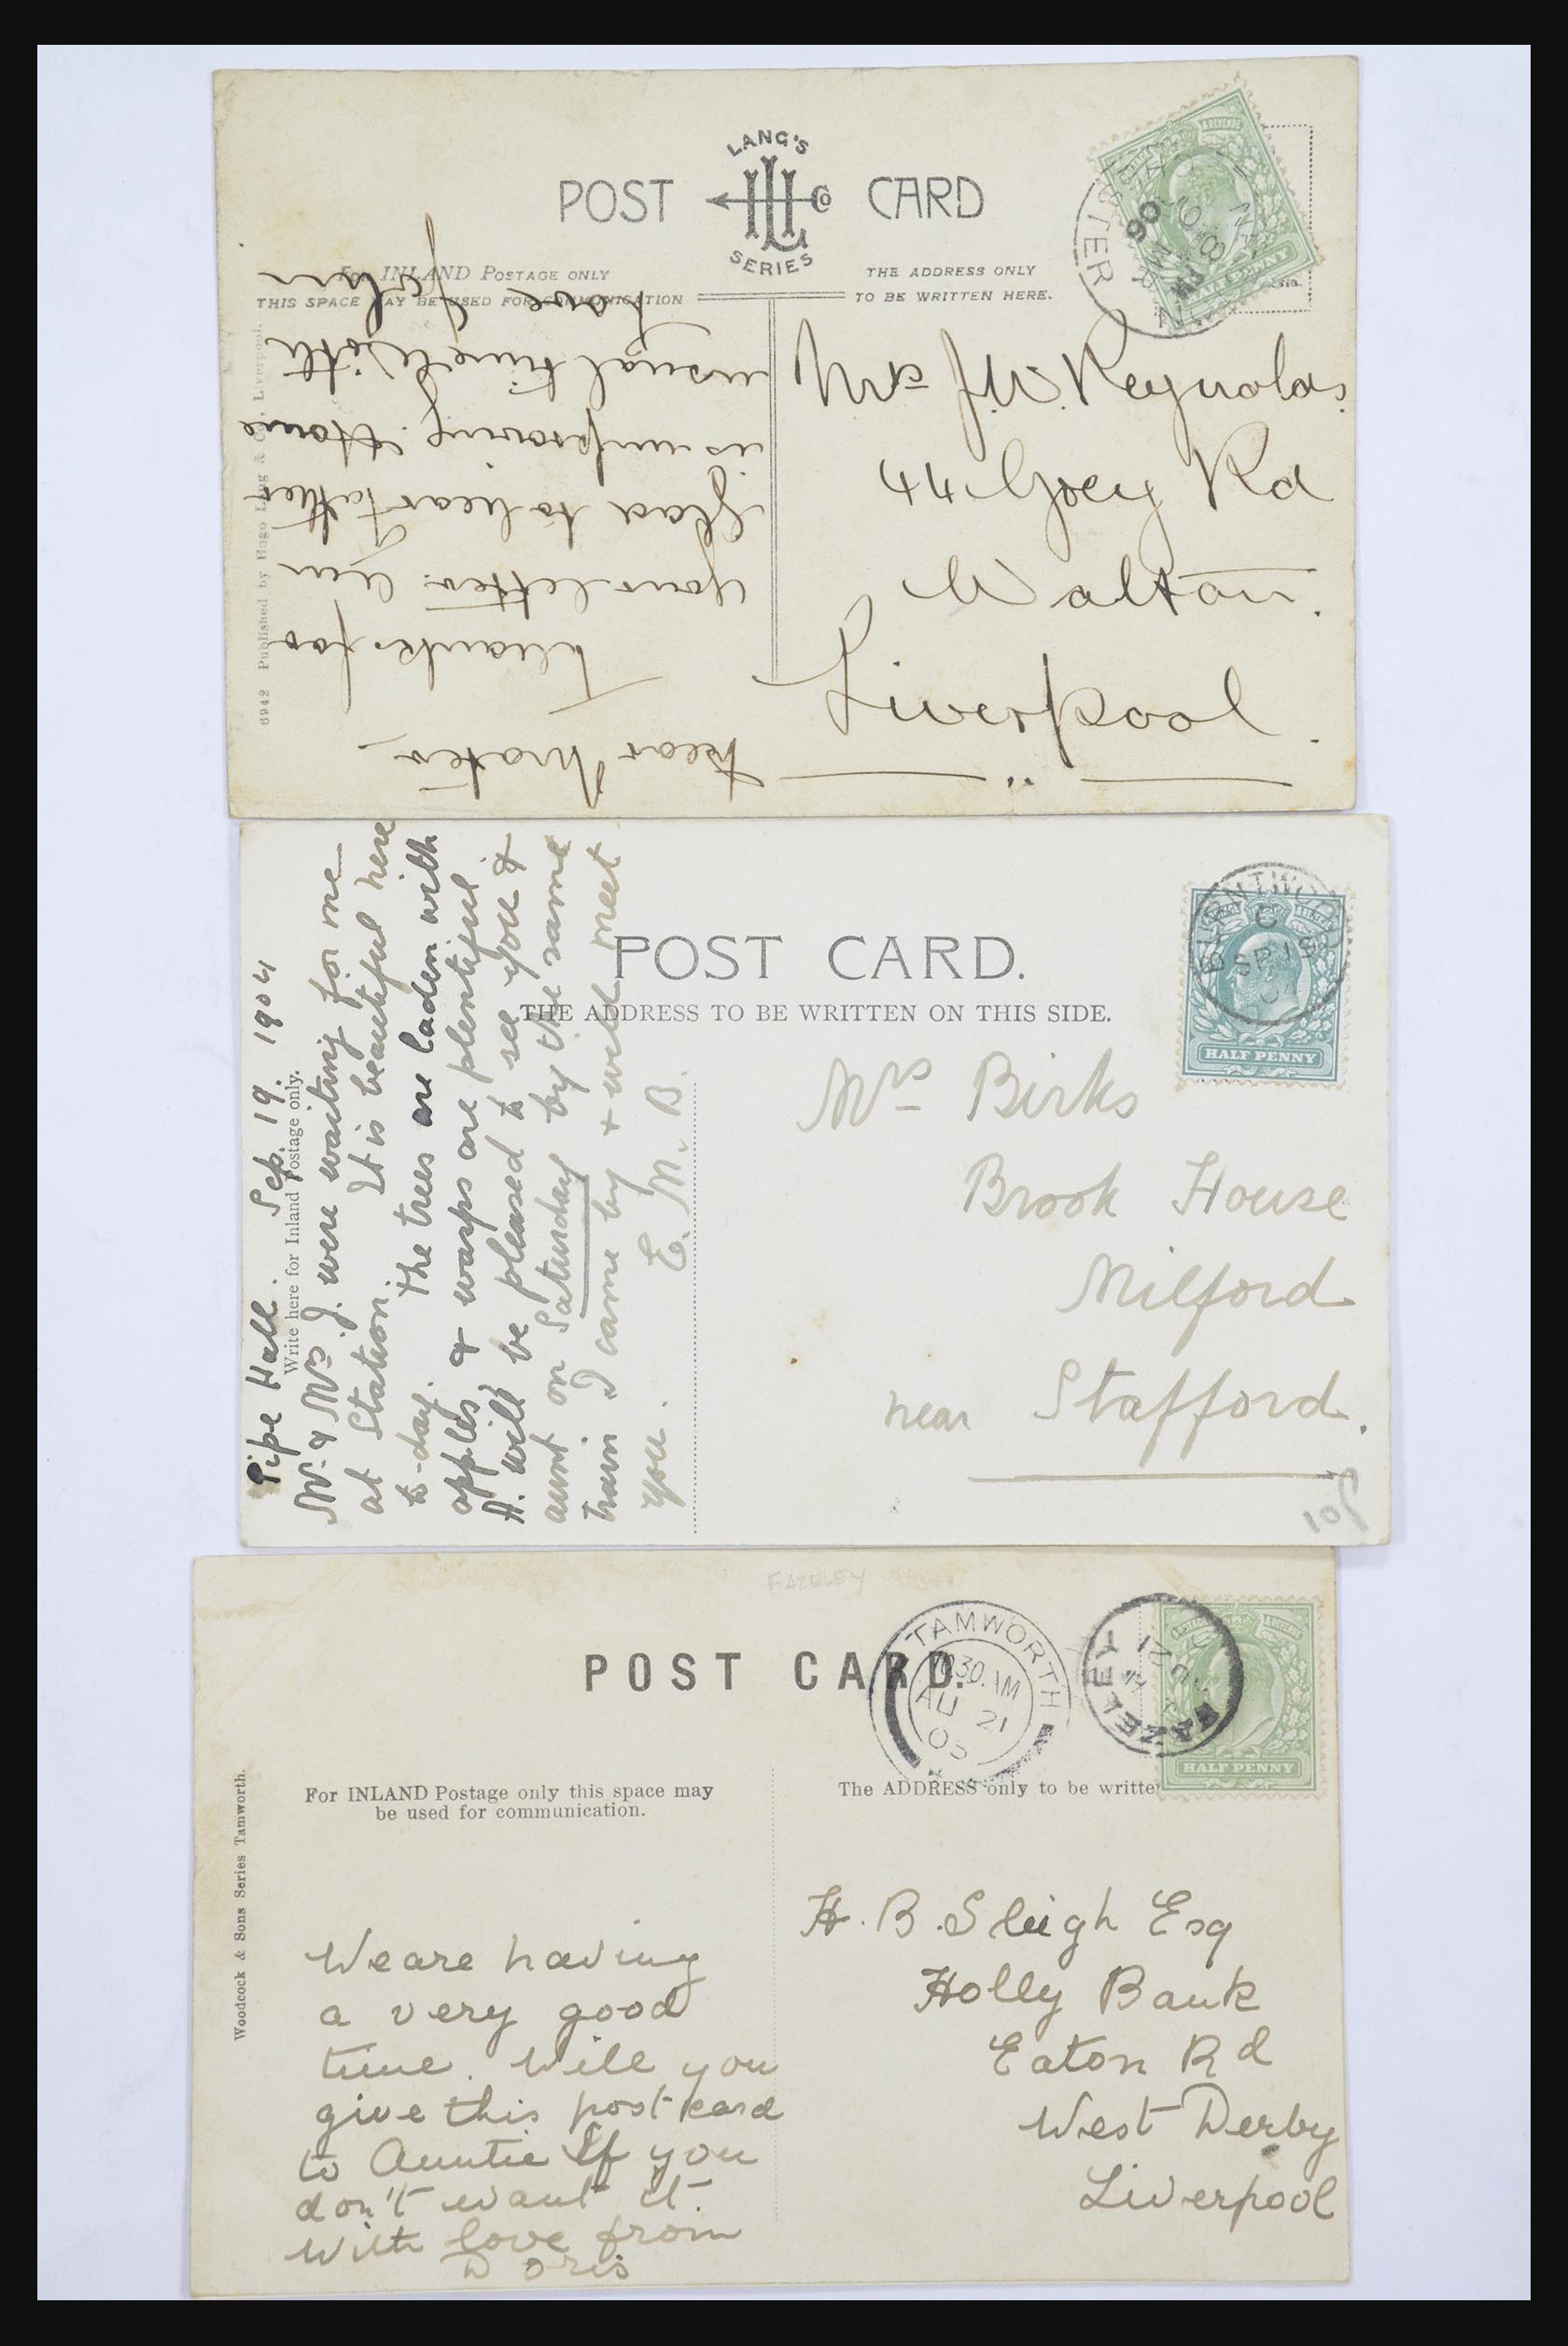 LANG'S
POST CARD
SERIES
For INLAND POSTAGE ONLY
THIS SPACE MAY BE USED FOR COMMUNICATION
THE ADDRESS ONLY
TO BE WRITTEN HERE.
HALF PENNY
6942 Published by Hugo Lang & Co., Liverpool.
Mrs J.W. Reynolds.
44 Goey Rd
Walton.
Liverpool.
Dear Mater.
Thanks for
your letter. Am
glad to hear Father
is improving. Home
usual time With
love John
POST CARD.
THE ADDRESS TO BE WRITTEN ON THIS SIDE.
Write here for Inland Postage only.
BURNTWOOD
C
SP 19
04
HALF PENNY
Pipe Hall. Sep. 19. 1904
Mr. & Mrs. J. were waiting for me
at Station. It is beautiful here
to-day. The trees are laden with
apples & wasps are plentiful
A. will be pleased to see you &
aunt on Saturday by the same
train I came by & will meet
you. E. M. B.
Mrs Birks
Brook House
Milford
near Stafford.
FAZELEY
POST CARD.
TAMWORTH
1030 AM
AU 21
05
FAZELEY
HALF PENNY
For INLAND Postage only this space may
be used for communication.
The ADDRESS only to be writte
Woodcock & Sons Series Tamworth.
We are having
a very good
time. Will you
give this post card
to Auntie If you
don't want it.
With love from
Doris
H. B. Sleigh Esq
Holly Bank
Eaton Rd
West Derby
Liverpool